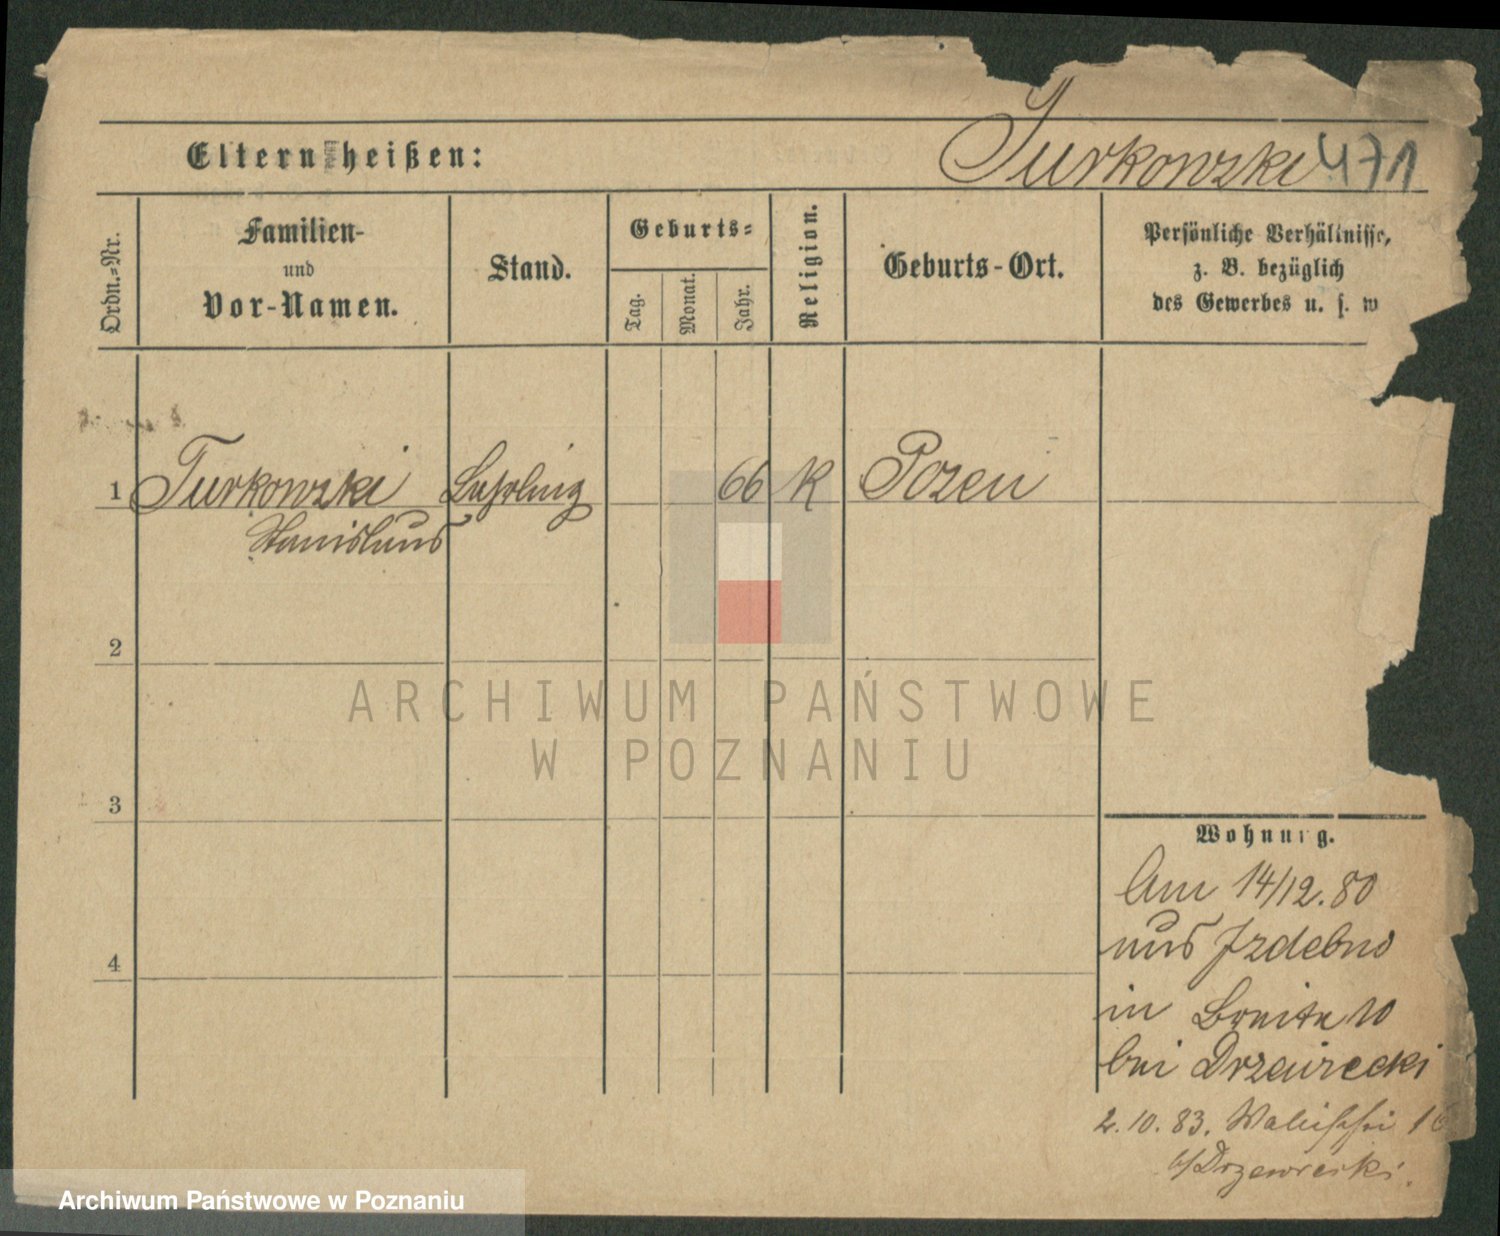 Eltern heißen:
Turkowski 471
Ordn.=Nr.
Familien-
und
Vor-Namen.
Stand.
Geburts=
Tag.
Monat.
Jahr.
Religion.
Geburts-Ort.
Persönliche Verhältnisse,
z. B. bezüglich
des Gewerbes u. s. w
1 Turkowski Lehrling 66 K Posen
Stanislaus
2
ARCHIWUM PAŃSTWOWE
W POZNANIU
3
Wohnung.
Am 14/12.80
aus Izdebno
in Breite 10
bei Drzewiecki
4
2.10.83. Wallischei 16
b/Drzewiecki.
Archiwum Państwowe w Poznaniu